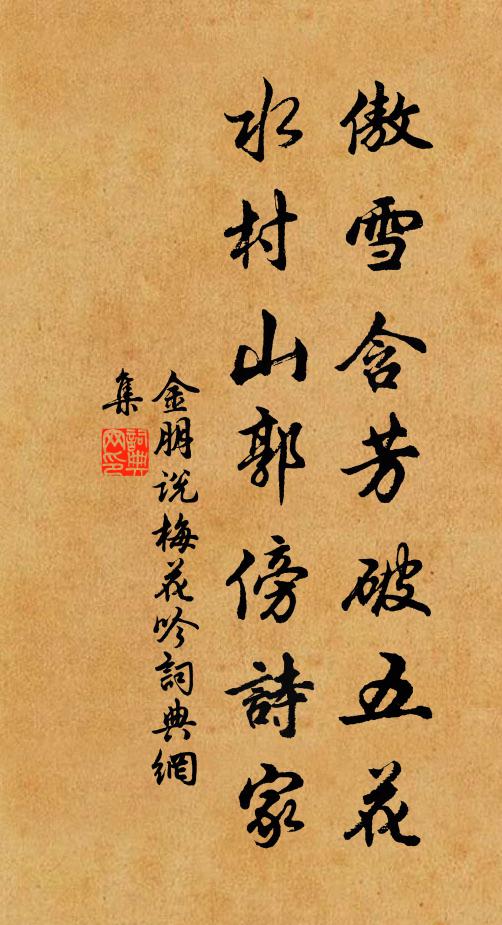 傲雪含芳破五花
水村山郭傍詩家
金朋说梅花吟詞典網
集
詞典網印